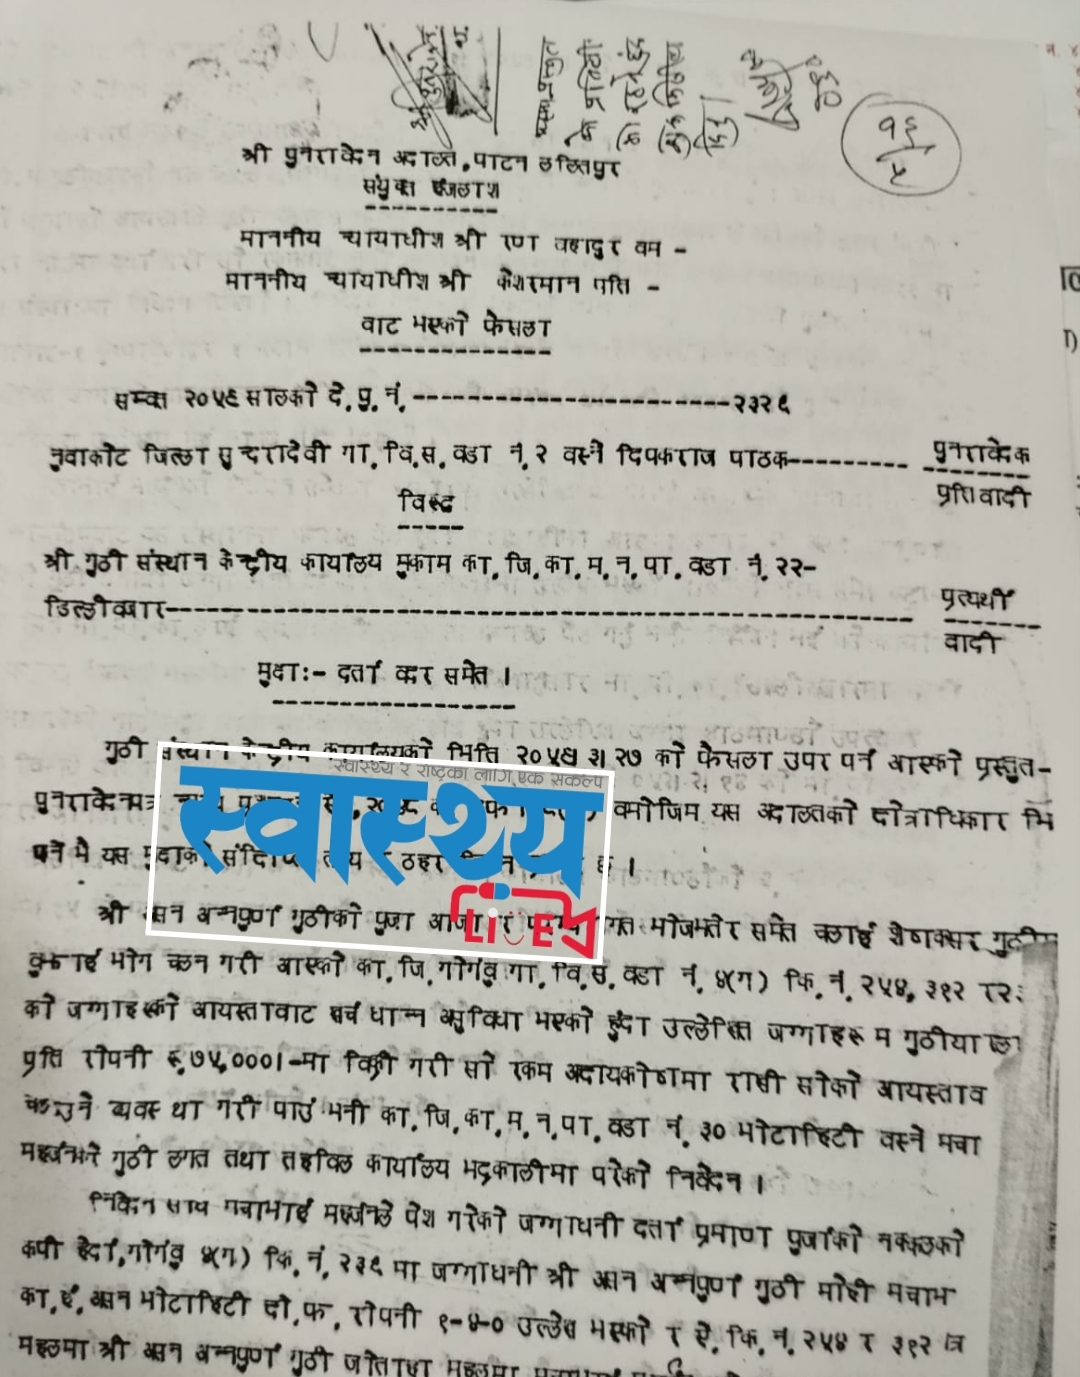 १६/५
श्री पुनरावेदन अदालत, पाटन ललितपुर
संयुक्त इजलाश
माननीय न्यायाधीश श्री रण बहादुर बम -
माननीय न्यायाधीश श्री केशरमान पति -
वाट भएको फैसला
सम्वत २०५६ सालको दे. पु. नं. ------------------------ २३२९
नुवाकोट जिल्ला सुन्दरादेवी गा. वि. स. वडा नं. २ वस्ने दिपकराज पाठक--------- पुनरावेदक
प्रतिवादी
विरुद्ध
श्री गुठी संस्थान केन्द्रीय कार्यालय मुकाम का. जि. का. म. न. पा. वडा नं. २२-
डिल्लीबजार------------------------ प्रत्यर्थी
वादी
मुद्दाः- दर्ता बदर समेत ।
गुठी संस्थान केन्द्रीय कार्यालयको मिति ३।२७ को फैसला उपर पर्न आएको प्रस्तुत-
स्वास्थ्य र राष्ट्रका लागि एक संकल्प
पुनरावेदनपत्र वमोजिम यस अदालतको क्षेत्राधिकार भि
स्वास्थ्य
पर्ने मै यस मुद्दाको ठहर छ ।
LIVE
श्री असन अन्नपुर्ण गुठीको पुजा आजा र समेत चलाई शेषकसर गुठीमा
बुझाई भोग चलन गरी आएको का. जि. गोंगबु गा. वि. स. वडा नं. ४(ग) कि. नं. २५४, ३१२ र २३
को जग्गाहरुको आयस्तावाट खर्च धान्न असुविधा भएको हुँदा उल्लेखित जग्गाहरु म गुठीयाला
प्रति रोपनी रु. ७५,०००।-मा विक्री गरी सो रकम अक्षयकोषमा राखी सोको आयस्ताव
चलाउने व्यवस्था गरी पाउं भनी का. जि. का. म. न. पा. वडा नं. ३० भोटाहिटी वस्ने मचा
महर्जनको गुठी लगत तथा तहविल कार्यालय भद्रकालीमा परेको निवेदन ।
निवेदन साथ मचाभाई महर्जनले पेश गरेको जग्गाधनी दर्ता प्रमाण पुर्जाको नक्कलको
कपी हेर्दा, गोंगबु ४(ग) कि. नं. २३९ मा जग्गाधनी श्री असन अन्नपुर्ण गुठी मोही मचाभ
का. ई. असन भोटाहिटी दो. फ. रोपनी १-४-० उल्लेख भएको र ऐ. कि. नं. २५४ र ३१२
महलमा श्री असन अन्नपुर्ण गुठी जोताहा महलमा